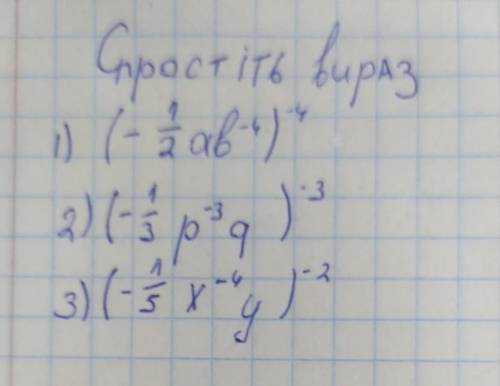 Спростіть вираз
1) (-1/2 ab⁻⁴)⁻⁴
2) (-1/3 p⁻³q)⁻³
3) (-1/5 x⁻⁴y)⁻²